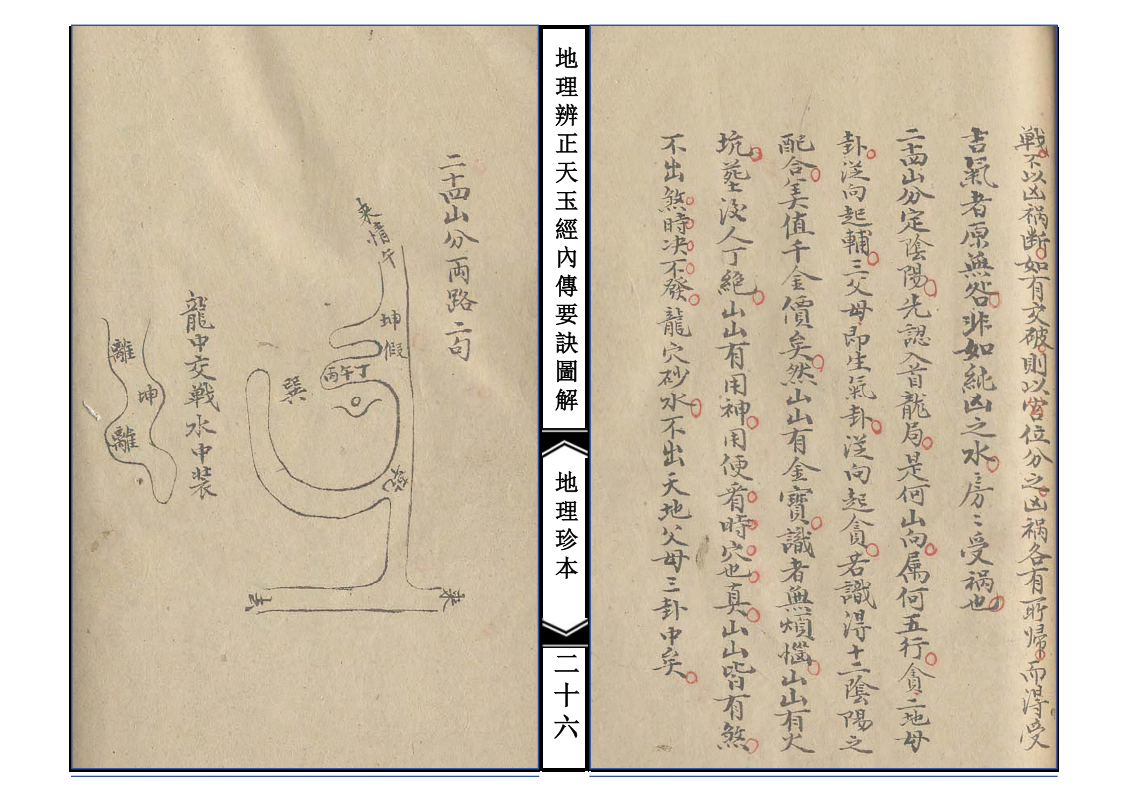 戰不以凶禍断如有交破則以宮位分之凶禍各有所歸而得受
吉氣者原無咎非如純凶之水房〻受禍也
二十四山分定陰陽先認入首龍局是何山向属何五行貪二地母
卦逆向起輔三父母即生氣卦逆向起貪若識得十二陰陽之
配合美值千金價矣然山山有金寶識者無煩惱山山有火
坑葬没人丁絕山山有用神用便看時穴也真山山皆有煞
不出煞時决不發龍穴砂水不出天地父母三卦中矣
地理辨正天玉經內傳要訣圖解
地理珍本
二十六
二十四山分両路二句
來情午
坤
假
丙午丁
巽
乾
去
來
龍中交戰水中装
離
坤
離